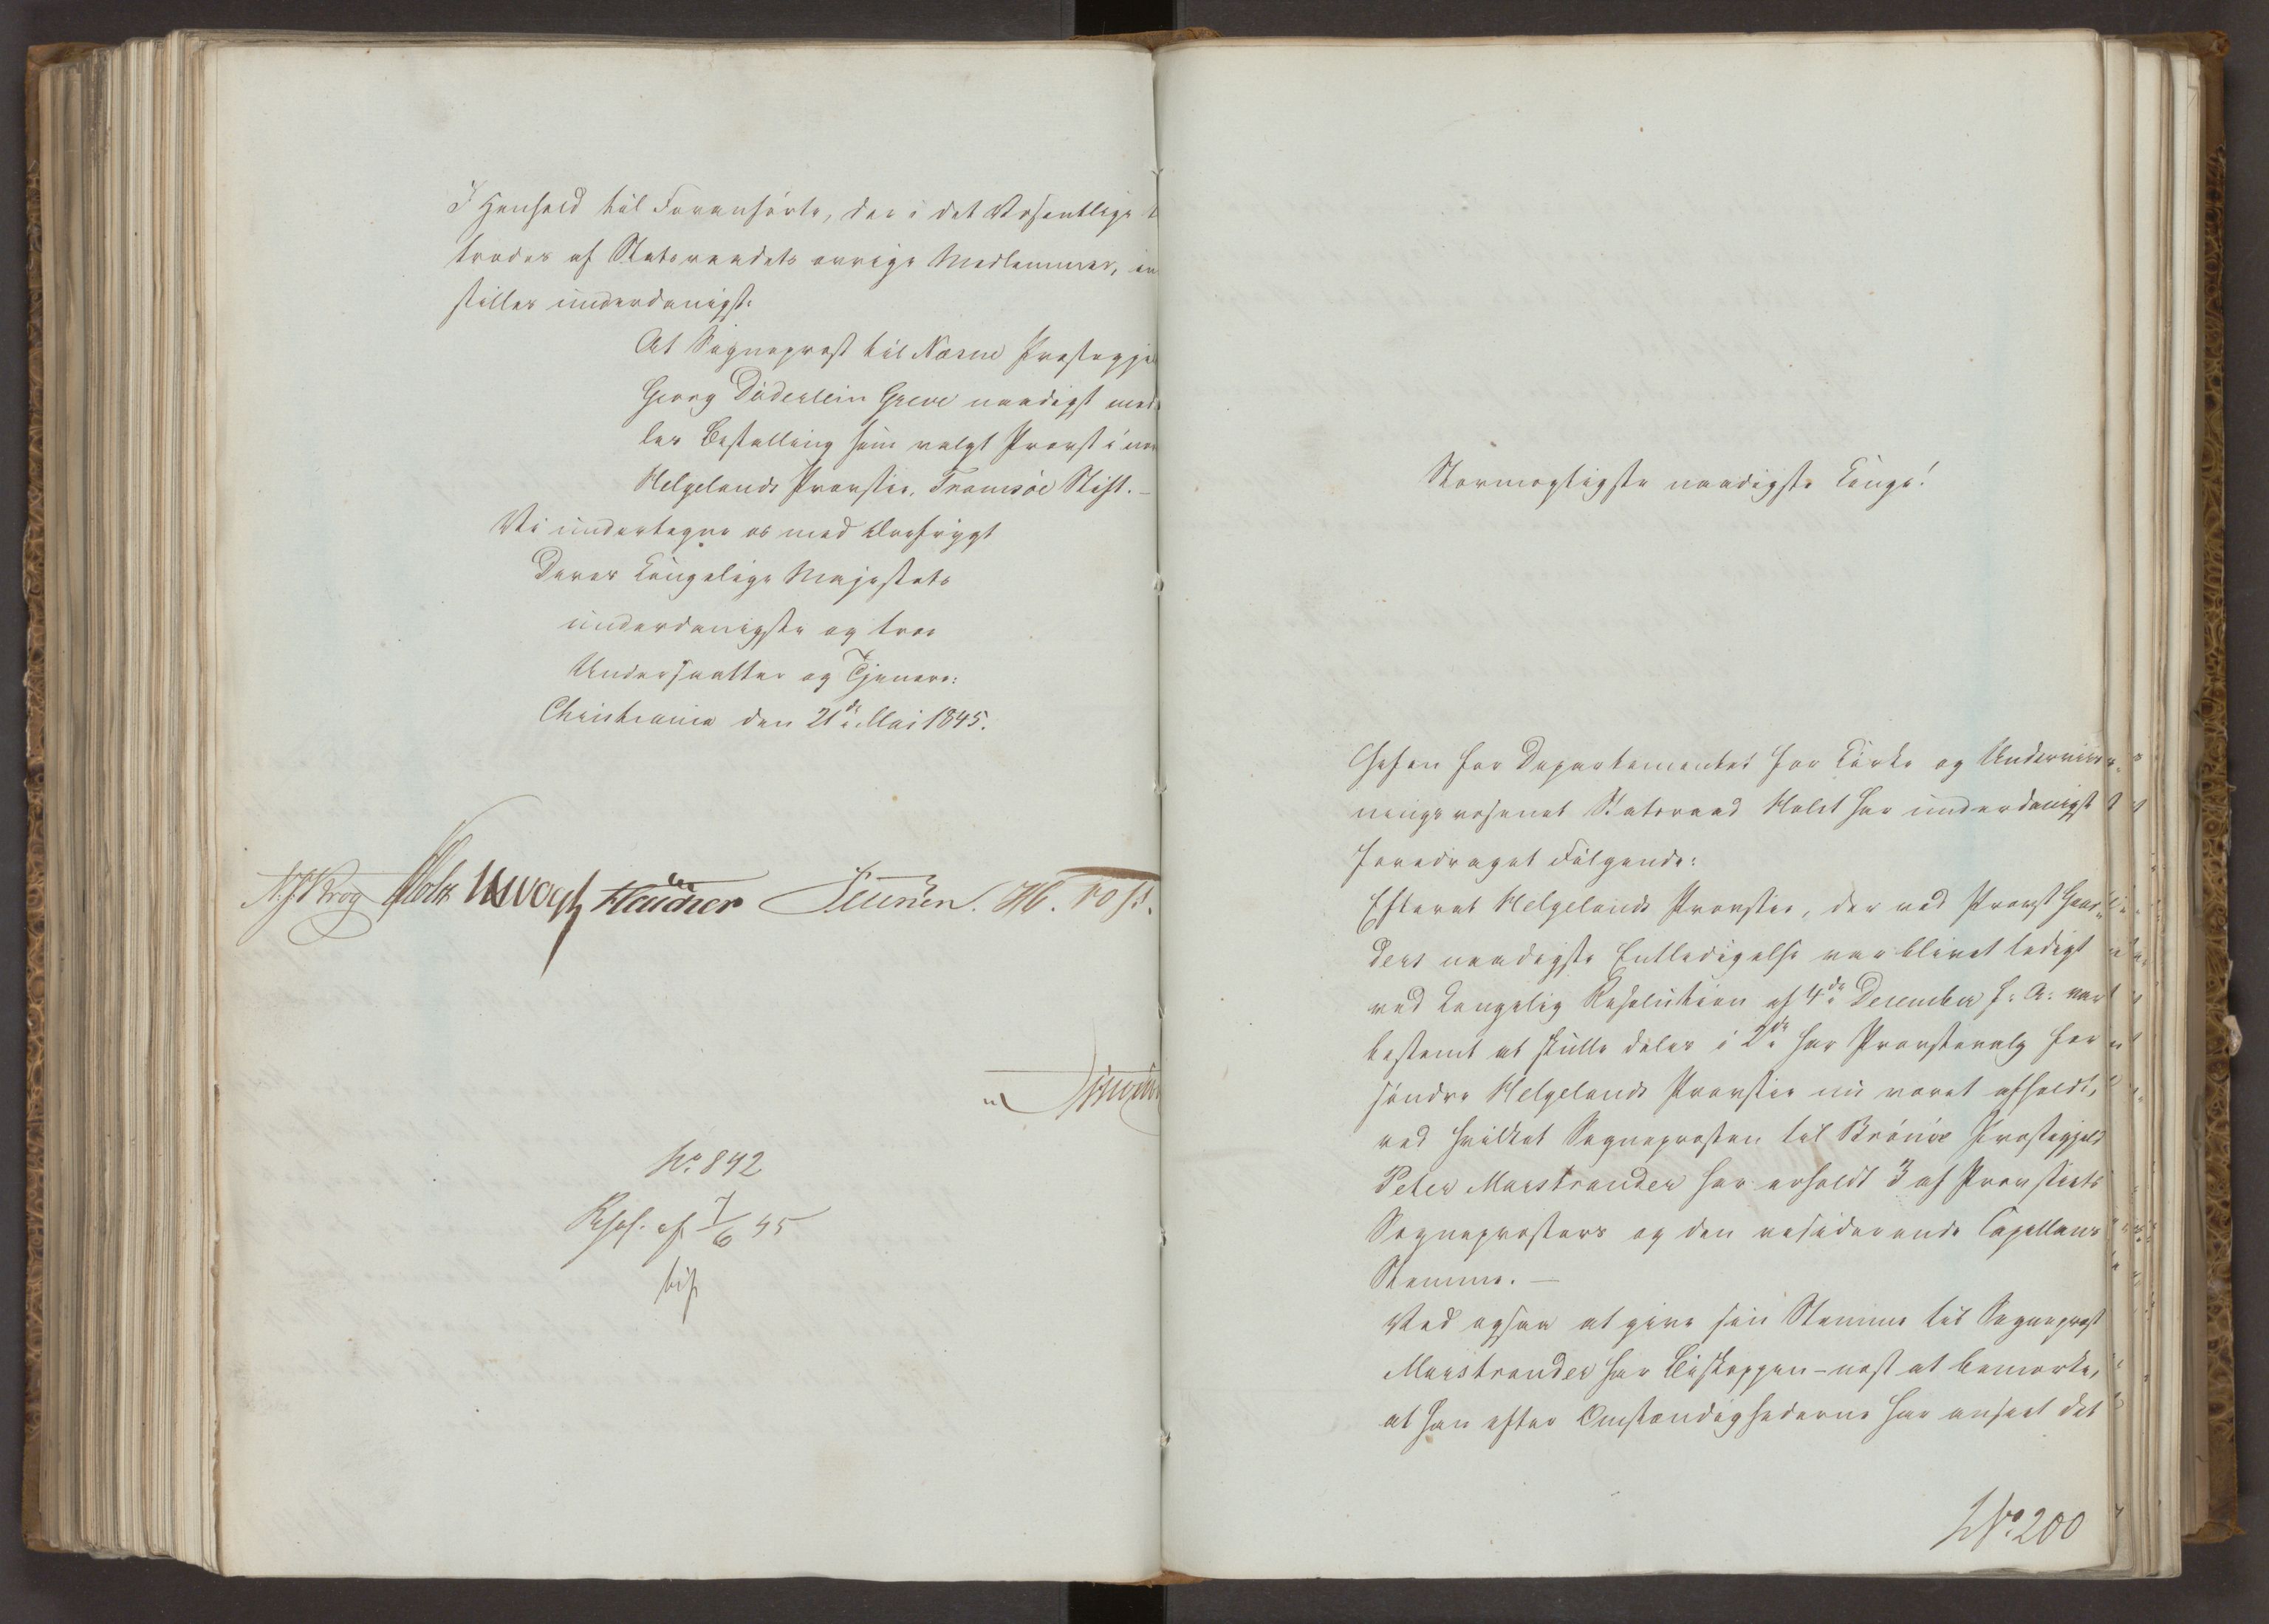 I Henhold til Foranførte, der i det Væsentlige
trædes af Statsraadets øvrige Medlemmer, in
stilles underdanigst:
At Sognepræst til Næsne Præstegje
Georg Döderlein Greve naadigst med
les Bestalling som valgt Provst i nor
Helgelands Provstie, Tromsøe Stift. –
Vi undertegne os med Ærefrygt
Deres Kongelige Majestæts
underdanigste og troe
Undersaatter og Tjenere:
Christiania den 21de Mai 1845.
N. J. Krog Holst Vogt
No 842
Resol. af 7/6 45
Stormægtigste naadigste Konge!
Chefen for Departementet for Kirke og Undervis
ningsvæsenet Statsraad Holst har underdanigst
foredraget Følgende:
Efterat Helgelands Provstie, der ved Provst
ders naadigste Entledigelse var blevet ledigt
ved kongelig Resolution af 4de December f: A: var
bestemt at skulle deles i 2de har Provstevalg for
søndre Helgelands Provstie nu været afholdt,
ved hvilket Sognepræsten til Brönöe Præstegjeld
Peter Marstrander har erholdt 3 af Provstiets
Sognepræsters og den residerende Capellans
Stemme. –
Ved ogsaa at give sin Stemme til Sognepræst
Marstrander har Biskoppen næst at bemærke,
at han efter Omstændighederne har anseet det
No. 200